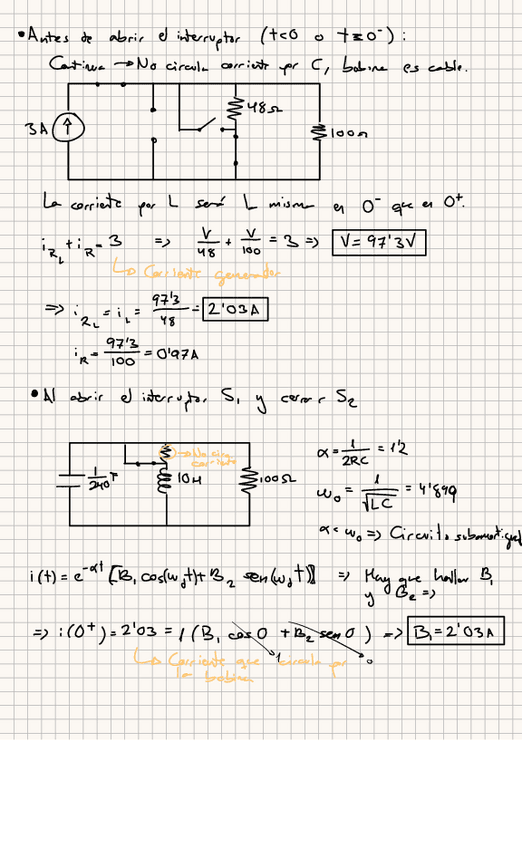 • Antes de abrir el interruptor (t<0 o t=0⁻):
Continua → No circula corriente por C, bobina es cable.
3A
48Ω
100Ω
La corriente por L será L misma en 0⁻ que en 0⁺.
i_RL + i_R = 3 => V/48 + V/100 = 3 => V = 97'3V
↳ Corriente generador
=> i_RL = i_L = 97'3/48 = 2'03A
i_R = 97'3/100 = 0'97A
• Al abrir el interruptor S₁ y cerrar S₂
→ No circ corriente
1/240 F
10H
100Ω
α = 1/2RC = 1'2
ω₀ = 1/√LC = 4'899
α < ω₀ => Circuito
i(t) = e^-αt [B₁ cos(ω_d t) + B₂ sen(ω_d t)] => Hay que hallar B₁
y B₂ =>
=> i(0⁺) = 2'03 = 1 (B₁ cos 0 + B₂ sen 0) => B₁ = 2'03A
1
0
↳ Corriente que circula por
la bobina